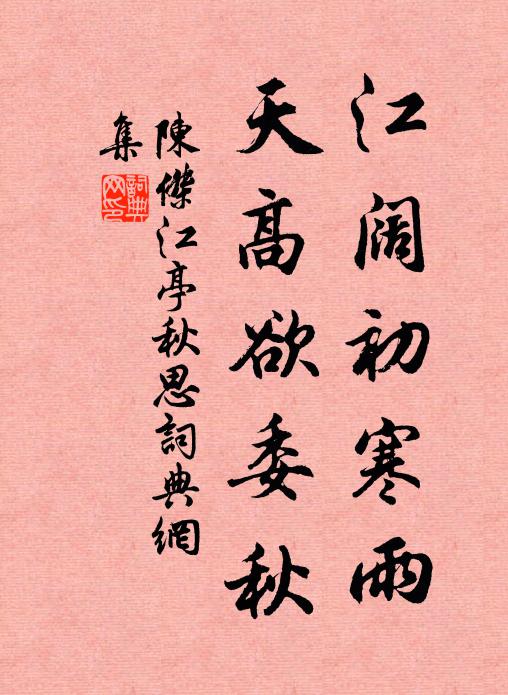 江阔初寒雨
天高欲委秋
陳傑江亭秋思詞典網
集
詞典
网印